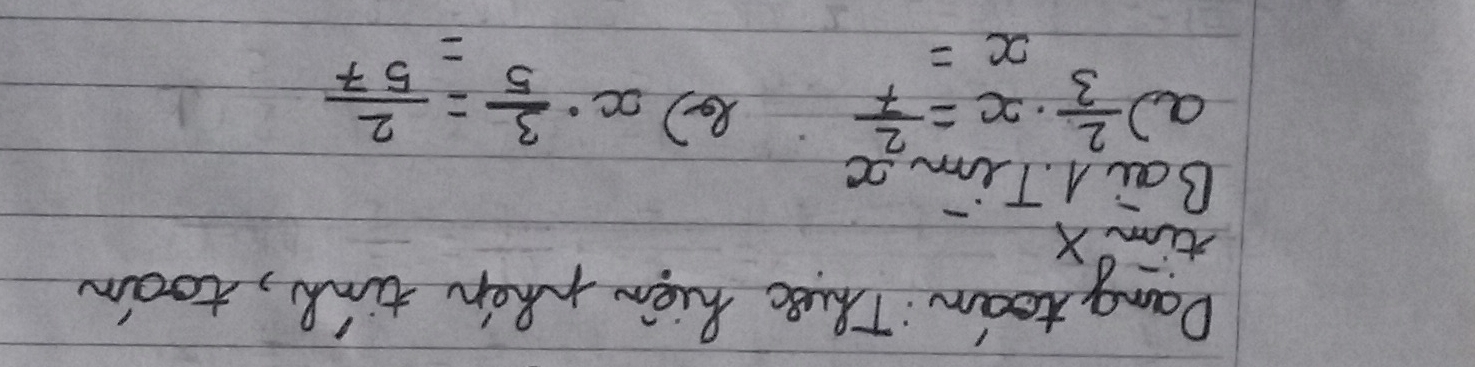 Dạng toán: Thực hiện phép tính, toán
tìm x
Bài 1. Tìm x
a) 2/3 · x = 2/7 b) x · 3/5 = 2/57
x = =